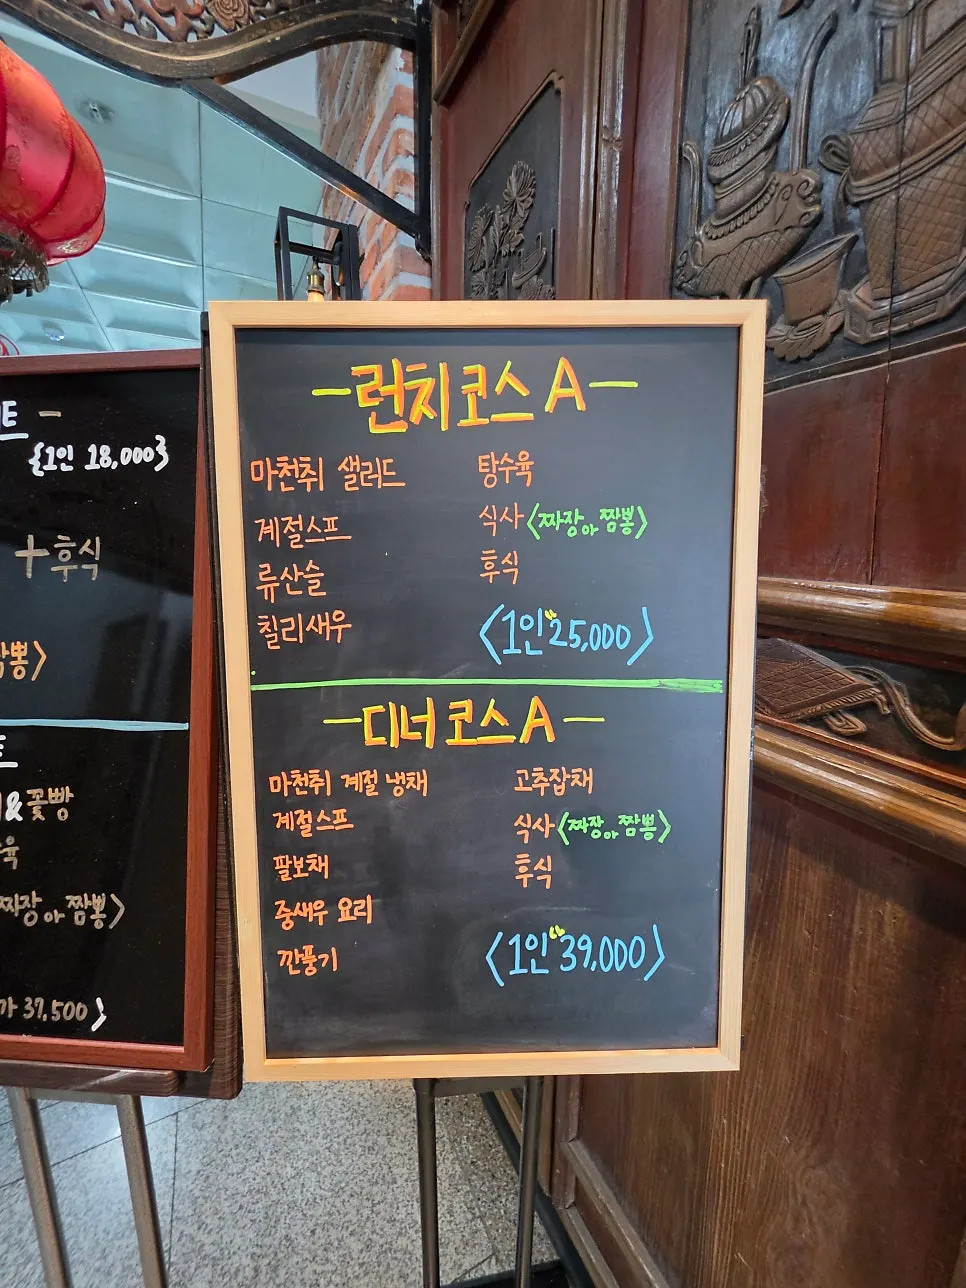 {1인 18,000}
+후식
짬뽕>
&꽃빵
짜장 or 짬뽕>
가 37,500>
-런치코스 A-
마천취 샐러드
계절스프
류산슬
칠리새우
탕수육
식사<짜장 or 짬뽕>
후식
<1인"25,000>
-디너코스A-
마천취 계절 냉채
계절스프
팔보채
중새우 요리
깐풍기
고추잡채
식사<짜장 or 짬뽕>
후식
<1인"39,000>